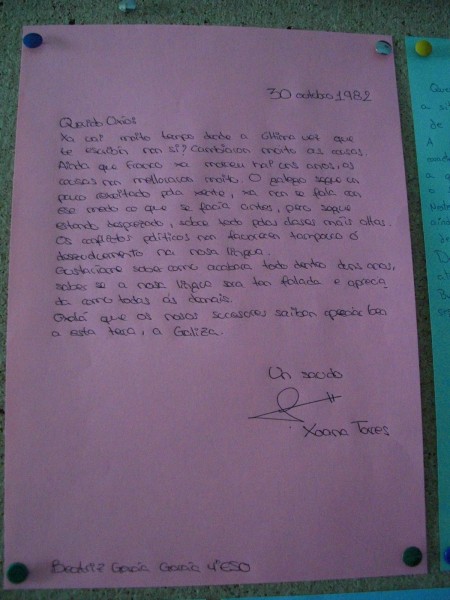 30 outubro 1982
Querido Oxios
Xa vai moito tempo dende a última vez que
te escribin non si? Cambiaron moito as cousas.
Ainda que Franco xa morreu hai uns anos, as
cousas non melloraron moito. O galego segue un
pouco exiliado pola xente, xa non se fala con
ese medo co que se facia antes, pero segue
estando desprezado, sobre todo polas clases máis altas.
Os conflitos políticos non favorecen tampouco ó
desenvolvemento da nosa lingua.
Gustariame saber como acabara todo dentro duns anos,
saber se a nosa lingua sera tan falada e aprecia
da como todas as demais.
Oxalá que os nosos sucesores saiban apreciar ben
a esta terra, a Galiza.
Un saúdo
Xoana Torres
Beatriz García García 4º ESO
Que
a si
de
A
a
o